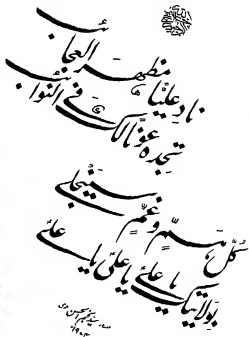 ناد علیًّا مظهر العجائب
تجده عونًا لك في النوائب
كُلُّ هَمٍّ وغَمٍّ سينجلي
بولايتك يا علي يا علي يا علي